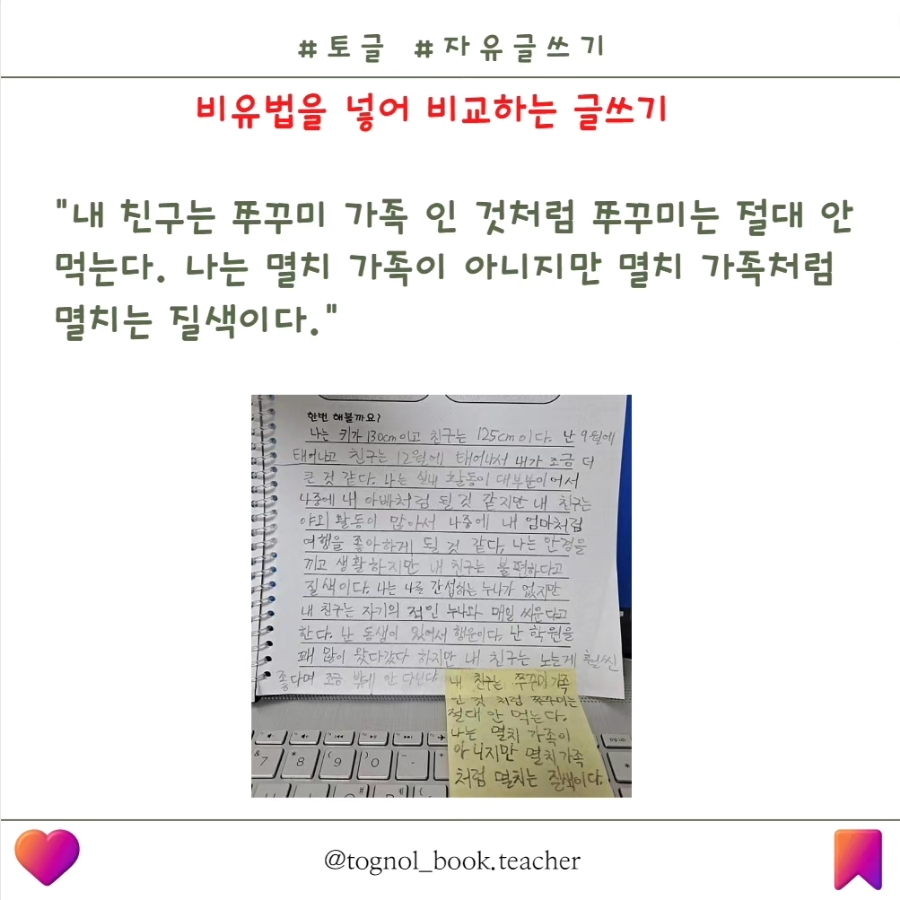 #토글 #자유글쓰기
비유법을 넣어 비교하는 글쓰기
"내 친구는 쭈꾸미 가족 인 것처럼 쭈꾸미는 절대 안
먹는다. 나는 멸치 가족이 아니지만 멸치 가족처럼
멸치는 질색이다."
한번 해볼까요?
나는 키가 130cm이고 친구는 125cm이다. 난 9월에
태어나고 친구는 12월에 태어나서 내가 조금 더
큰 것 같다. 나는 실내 활동이 대부분이어서
나중에 내 아빠처럼 될 것 같지만 내 친구는
야외 활동이 많아서 나중에 내 엄마처럼
여행을 좋아하게 될 것 같다. 나는 안경을
끼고 생활하지만 내 친구는 불편하다고
질색이다. 나는 나를 간섭하는 누나가 없지만
내 친구는 자기의 적인 누나와 매일 싸운다고
한다. 난 동생이 있어서 행운이다. 난 학원을
꽤 많이 왔다갔다 하지만 내 친구는 노는게 훨씬
좋다며 조금 밖에 안 다닌다
내 친구는 쭈꾸미 가족
인 것 처럼 쭈꾸미는
절대 안 먹는다.
나는 멸치 가족이
아니지만 멸치 가족
처럼 멸치는 질색이다.
7 8 9 0
@tognol_book.teacher